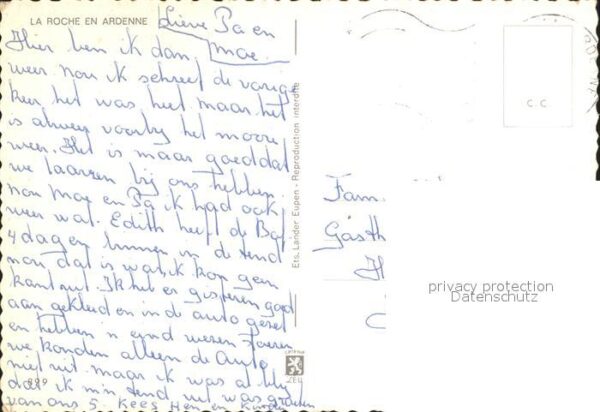 LA ROCHE EN ARDENNE
Lieve Pa en
Moe.
Hier ben ik dan
weer nou ik schreef de vorige
keer het was heet maar het
is alweer voorby het mooie
weer. Het is maar goed dat
we laarzen bij ons hebben.
nou Moe en Pa ik had ook
weer wat. Edith heeft de
4 dagen binnen in de tend
nou dat is wat, ik kon geen
kant uit. Ik heb er gisteren goed
aan gekleed en in de auto gezet
en hebben 'n eind weren toeren
we konden alleen de Auto
niet uit maar ik was al bly
dat ik m'n tend uit was
van ons 5. Kees Hen en
Ets. Lander Eupen - Reproduction interdite
C.C.
Fam.
Gasth
H
privacy protection
Datenschutz